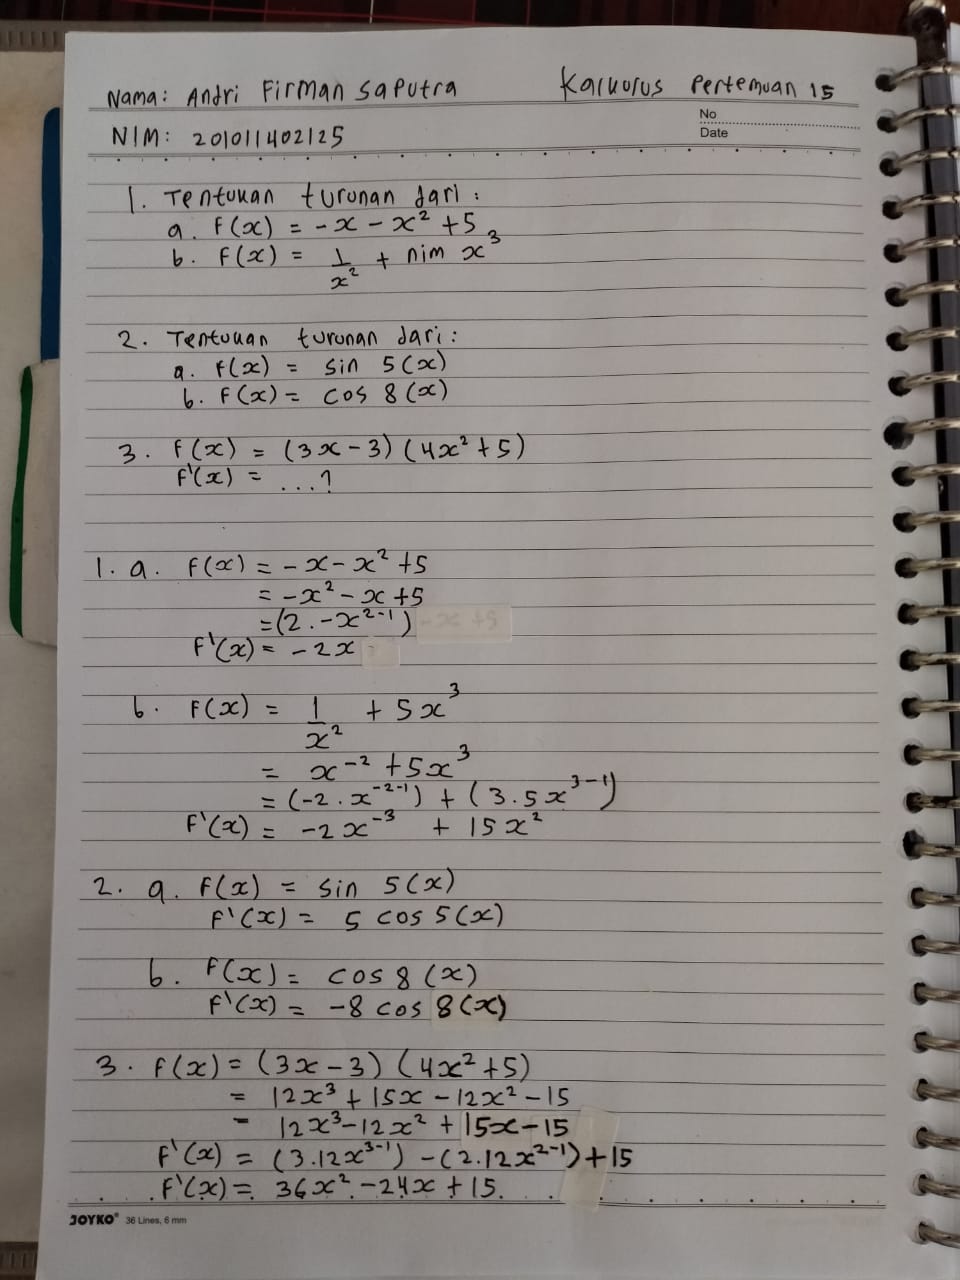 Nama: Andri Firman Saputra Kalkulus Pertemuan 15
No
NIM: 201011402125
Date
1. Tentukan turunan dari:
a. f(x) = -x - x² + 5
b. f(x) = 1/x² + nim x³
2. Tentukan turunan dari:
a. f(x) = sin 5(x)
b. f(x) = cos 8(x)
3. f(x) = (3x - 3) (4x² + 5)
f'(x) = ...?
1. a. f(x) = -x - x² + 5
= -x² - x + 5
= (2 . -x²⁻¹)
f'(x) = -2x
b. f(x) = 1/x² + 5x³
= x⁻² + 5x³
= (-2 . x⁻²⁻¹) + (3 . 5x³⁻¹)
f'(x) = -2x⁻³ + 15x²
2. a. f(x) = sin 5(x)
f'(x) = 5 cos 5(x)
b. f(x) = cos 8(x)
f'(x) = -8 cos 8(x)
3. f(x) = (3x - 3) (4x² + 5)
= 12x³ + 15x - 12x² - 15
= 12x³ - 12x² + 15x - 15
f'(x) = (3.12x³⁻¹) - (2.12x²⁻¹) + 15
f'(x) = 36x² - 24x + 15
JOYKO® 36 Lines, 6 mm